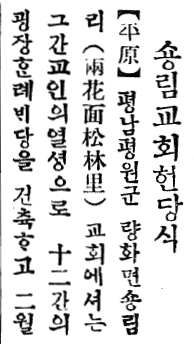 숑림교회헌당식
【平原】 평남평원군 량화면숑림
리(兩花面松林里) 교회에셔는
그간교인의열셩으로 十二간의
굉장ᄒᆞᆫ례ᄇᆡ당을 건축ᄒᆞ고 二월